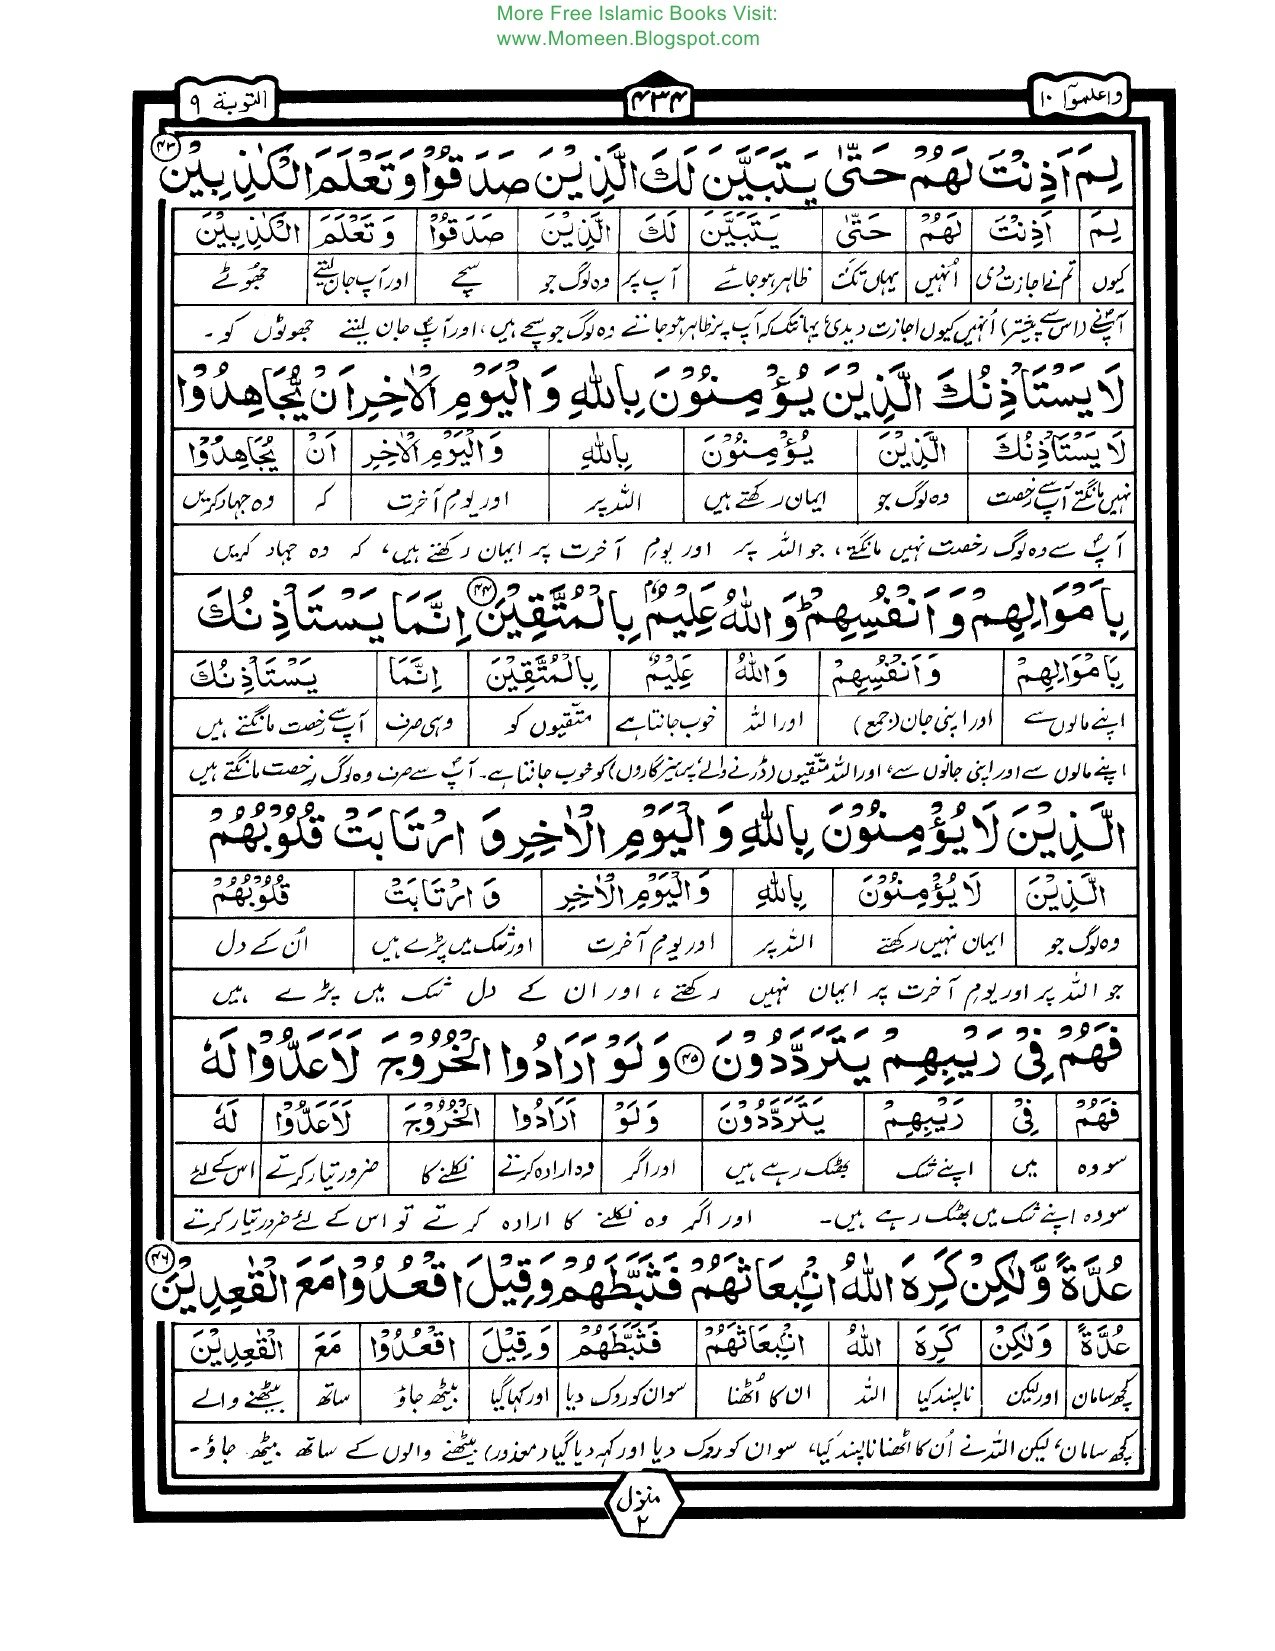 More Free Islamic Books Visit:
www.Momeen.Blogspot.com
واعلموا ١٠ ۴۳۴ التوبة ٩
لِمَ اَذِنْتَ لَهُمْ حَتّٰى يَتَبَيَّنَ لَكَ الَّذِيْنَ صَدَقُوْا وَتَعْلَمَ الْكٰذِبِيْنَ ۴۳
لِمَ اَذِنْتَ لَهُمْ حَتّٰى يَتَبَيَّنَ لَكَ الَّذِيْنَ صَدَقُوْا وَتَعْلَمَ الْكٰذِبِيْنَ
کیوں تم نے اجازت دی اُنہیں یہاں تک ظاہر ہوجائے آپ پر وہ لوگ جو سچے اور آپ جان لیتے جھوٹے
آپؐ نے (اس سے پیشتر) اُنہیں کیوں اجازت دیدی؟ یہانتک کہ آپ پر ظاہر ہو جاتے وہ لوگ جو سچے ہیں، اور آپؐ جان لیتے جھوٹوں کو۔
لَا يَسْتَاْذِنُكَ الَّذِيْنَ يُؤْمِنُوْنَ بِاللّٰهِ وَالْيَوْمِ الْاٰخِرِ اَنْ يُّجَاهِدُوْا
لَا يَسْتَاْذِنُكَ الَّذِيْنَ يُؤْمِنُوْنَ بِاللّٰهِ وَالْيَوْمِ الْاٰخِرِ اَنْ يُّجَاهِدُوْا
نہیں مانگتے آپ سے رخصت وہ لوگ جو ایمان رکھتے ہیں اللہ پر اور یومِ آخرت کہ وہ جہاد کریں
آپؐ سے وہ لوگ رخصت نہیں مانگتے، جو اللہ پر اور یومِ آخرت پر ایمان رکھتے ہیں، کہ وہ جہاد کریں
بِاَمْوَالِهِمْ وَاَنْفُسِهِمْ ؕ وَاللّٰهُ عَلِيْمٌۢ بِالْمُتَّقِيْنَ ۴۴ اِنَّمَا يَسْتَاْذِنُكَ
بِاَمْوَالِهِمْ وَاَنْفُسِهِمْ وَاللّٰهُ عَلِيْمٌۢ بِالْمُتَّقِيْنَ اِنَّمَا يَسْتَاْذِنُكَ
اپنے مالوں سے اور اپنی جان (جمع) اور اللہ خوب جانتا ہے متّقیوں کو وہی صرف آپ سے رخصت مانگتے ہیں
اپنے مالوں سے اور اپنی جانوں سے، اور اللہ متّقیوں (ڈرنے والے، پرہیزگاروں) کو خوب جانتا ہے۔ آپؐ سے صرف وہ لوگ رخصت مانگتے ہیں
الَّذِيْنَ لَا يُؤْمِنُوْنَ بِاللّٰهِ وَالْيَوْمِ الْاٰخِرِ وَارْتَابَتْ قُلُوْبُهُمْ
الَّذِيْنَ لَا يُؤْمِنُوْنَ بِاللّٰهِ وَالْيَوْمِ الْاٰخِرِ وَارْتَابَتْ قُلُوْبُهُمْ
وہ لوگ جو ایمان نہیں رکھتے اللہ پر اور یومِ آخرت اور شک میں پڑے ہیں اُن کے دل
جو اللہ پر اور یومِ آخرت پر ایمان نہیں رکھتے، اور ان کے دل شک میں پڑے ہیں
فَهُمْ فِيْ رَيْبِهِمْ يَتَرَدَّدُوْنَ ۴۵ وَلَوْ اَرَادُوا الْخُرُوْجَ لَاَعَدُّوْا لَهٗ
فَهُمْ فِيْ رَيْبِهِمْ يَتَرَدَّدُوْنَ وَلَوْ اَرَادُوا الْخُرُوْجَ لَاَعَدُّوْا لَهٗ
سو وہ میں اپنے شک بھٹک رہے ہیں اور اگر وہ ارادہ کرتے نکلنے کا ضرور تیار کرتے اس کے لئے
سو وہ اپنے شک میں بھٹک رہے ہیں۔ اور اگر وہ نکلنے کا ارادہ کرتے تو اس کے لئے ضرور تیار کرتے
عُدَّةً وَّلٰكِنْ كَرِهَ اللّٰهُ انْۢبِعَاثَهُمْ فَثَبَّطَهُمْ وَقِيْلَ اقْعُدُوْا مَعَ الْقٰعِدِيْنَ ۴۶
عُدَّةً وَّلٰكِنْ كَرِهَ اللّٰهُ انْۢبِعَاثَهُمْ فَثَبَّطَهُمْ وَقِيْلَ اقْعُدُوْا مَعَ الْقٰعِدِيْنَ
کچھ سامان اور لیکن ناپسند کیا اللہ ان کا اُٹھنا سو ان کو روک دیا اور کہا گیا بیٹھ جاؤ ساتھ بیٹھنے والے
کچھ سامان، لیکن اللہ نے اُن کا اٹھنا ناپسند کیا، سو ان کو روک دیا اور کہہ دیا گیا (معذور) بیٹھنے والوں کے ساتھ بیٹھ جاؤ۔
منزل ٢